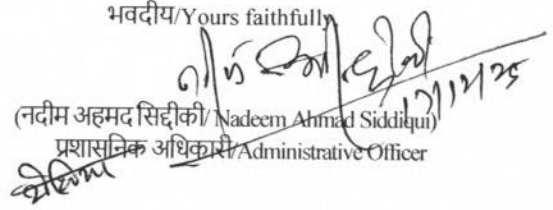 भवदीय/Yours faithfully
(नदीम अहमद सिद्दीकी/ Nadeem Ahmad Siddiqui)
प्रशासनिक अधिकारी/Administrative Officer